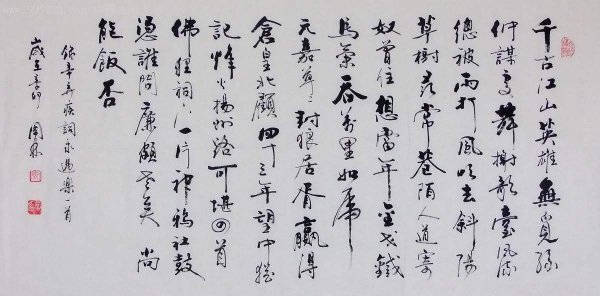 千古江山英雄無覓孫
仲謀處舞榭歌臺風流
總被雨打風吹去斜陽
草樹尋常巷陌人道寄
奴曾住想當年金戈鐵
馬氣吞萬里如虎
元嘉草〻封狼居胥贏得
倉皇北顧四十三年望中猶
記烽火揚州路可堪回首
佛狸祠下一片神鴉社鼓
憑誰問廉頗老矣尚
能飯否
辛棄疾詞永遇樂一首
歲在辛卯 周